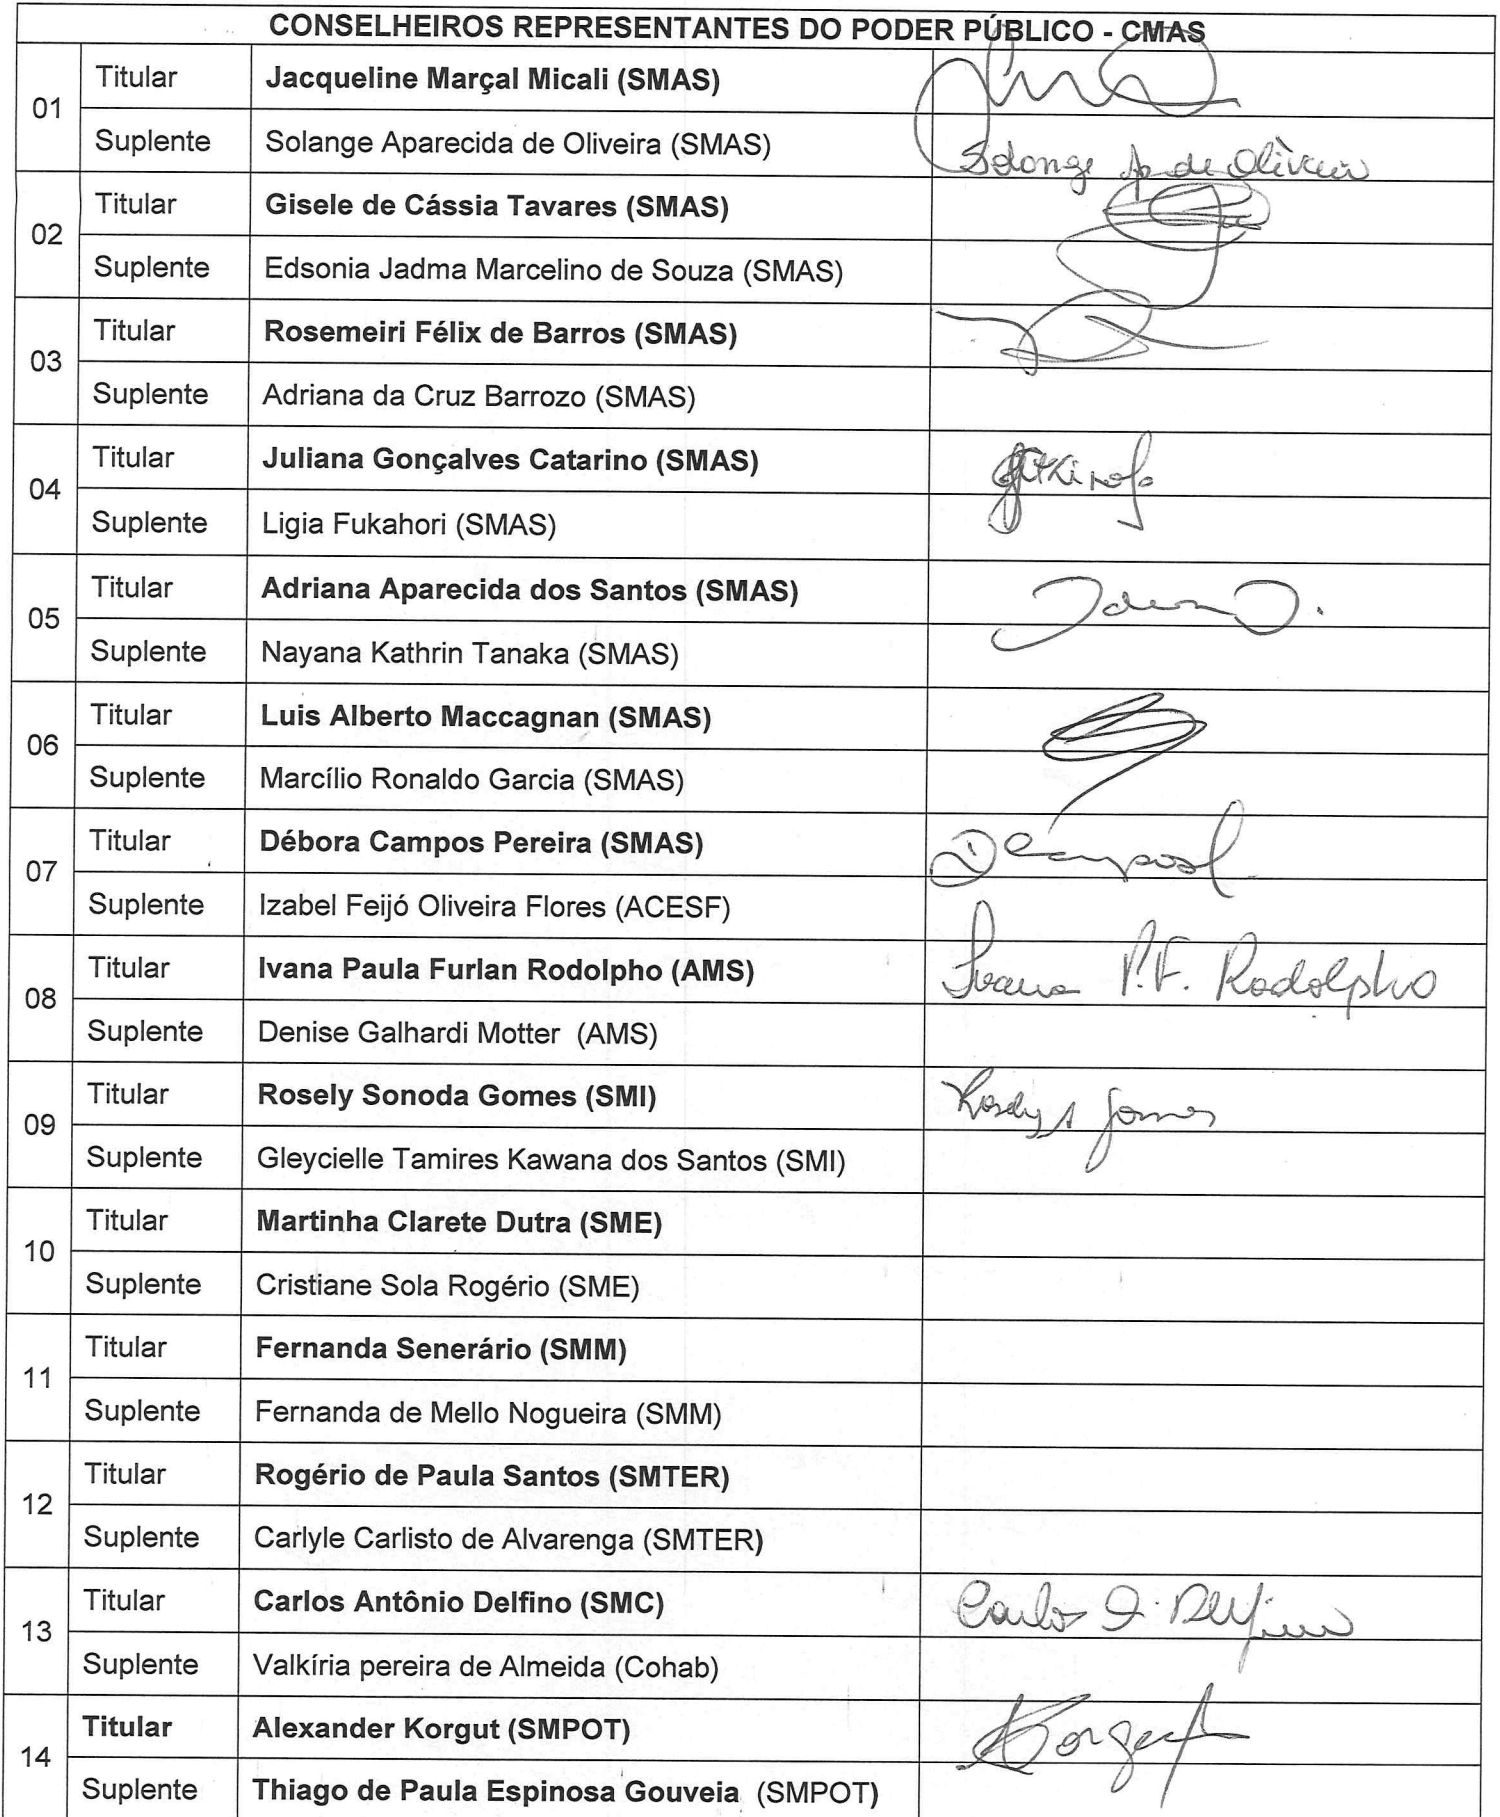 CONSELHEIROS REPRESENTANTES DO PODER PÚBLICO - CMAS
01
Titular Jacqueline Marçal Micali (SMAS)
Suplente Solange Aparecida de Oliveira (SMAS) Solange Ap de Oliveira
02
Titular Gisele de Cássia Tavares (SMAS)
Suplente Edsonia Jadma Marcelino de Souza (SMAS)
03
Titular Rosemeiri Félix de Barros (SMAS)
Suplente Adriana da Cruz Barrozo (SMAS)
04
Titular Juliana Gonçalves Catarino (SMAS)
Suplente Ligia Fukahori (SMAS)
05
Titular Adriana Aparecida dos Santos (SMAS)
Suplente Nayana Kathrin Tanaka (SMAS)
06
Titular Luis Alberto Maccagnan (SMAS)
Suplente Marcílio Ronaldo Garcia (SMAS)
07
Titular Débora Campos Pereira (SMAS)
Suplente Izabel Feijó Oliveira Flores (ACESF)
08
Titular Ivana Paula Furlan Rodolpho (AMS) Ivana P.F. Rodolpho
Suplente Denise Galhardi Motter (AMS)
09
Titular Rosely Sonoda Gomes (SMI) Rosely S Gomes
Suplente Gleycielle Tamires Kawana dos Santos (SMI)
10
Titular Martinha Clarete Dutra (SME)
Suplente Cristiane Sola Rogério (SME)
11
Titular Fernanda Senerário (SMM)
Suplente Fernanda de Mello Nogueira (SMM)
12
Titular Rogério de Paula Santos (SMTER)
Suplente Carlyle Carlisto de Alvarenga (SMTER)
13
Titular Carlos Antônio Delfino (SMC) Carlos A. Delfino
Suplente Valkíria pereira de Almeida (Cohab)
14
Titular Alexander Korgut (SMPOT) AKorgut
Suplente Thiago de Paula Espinosa Gouveia (SMPOT)